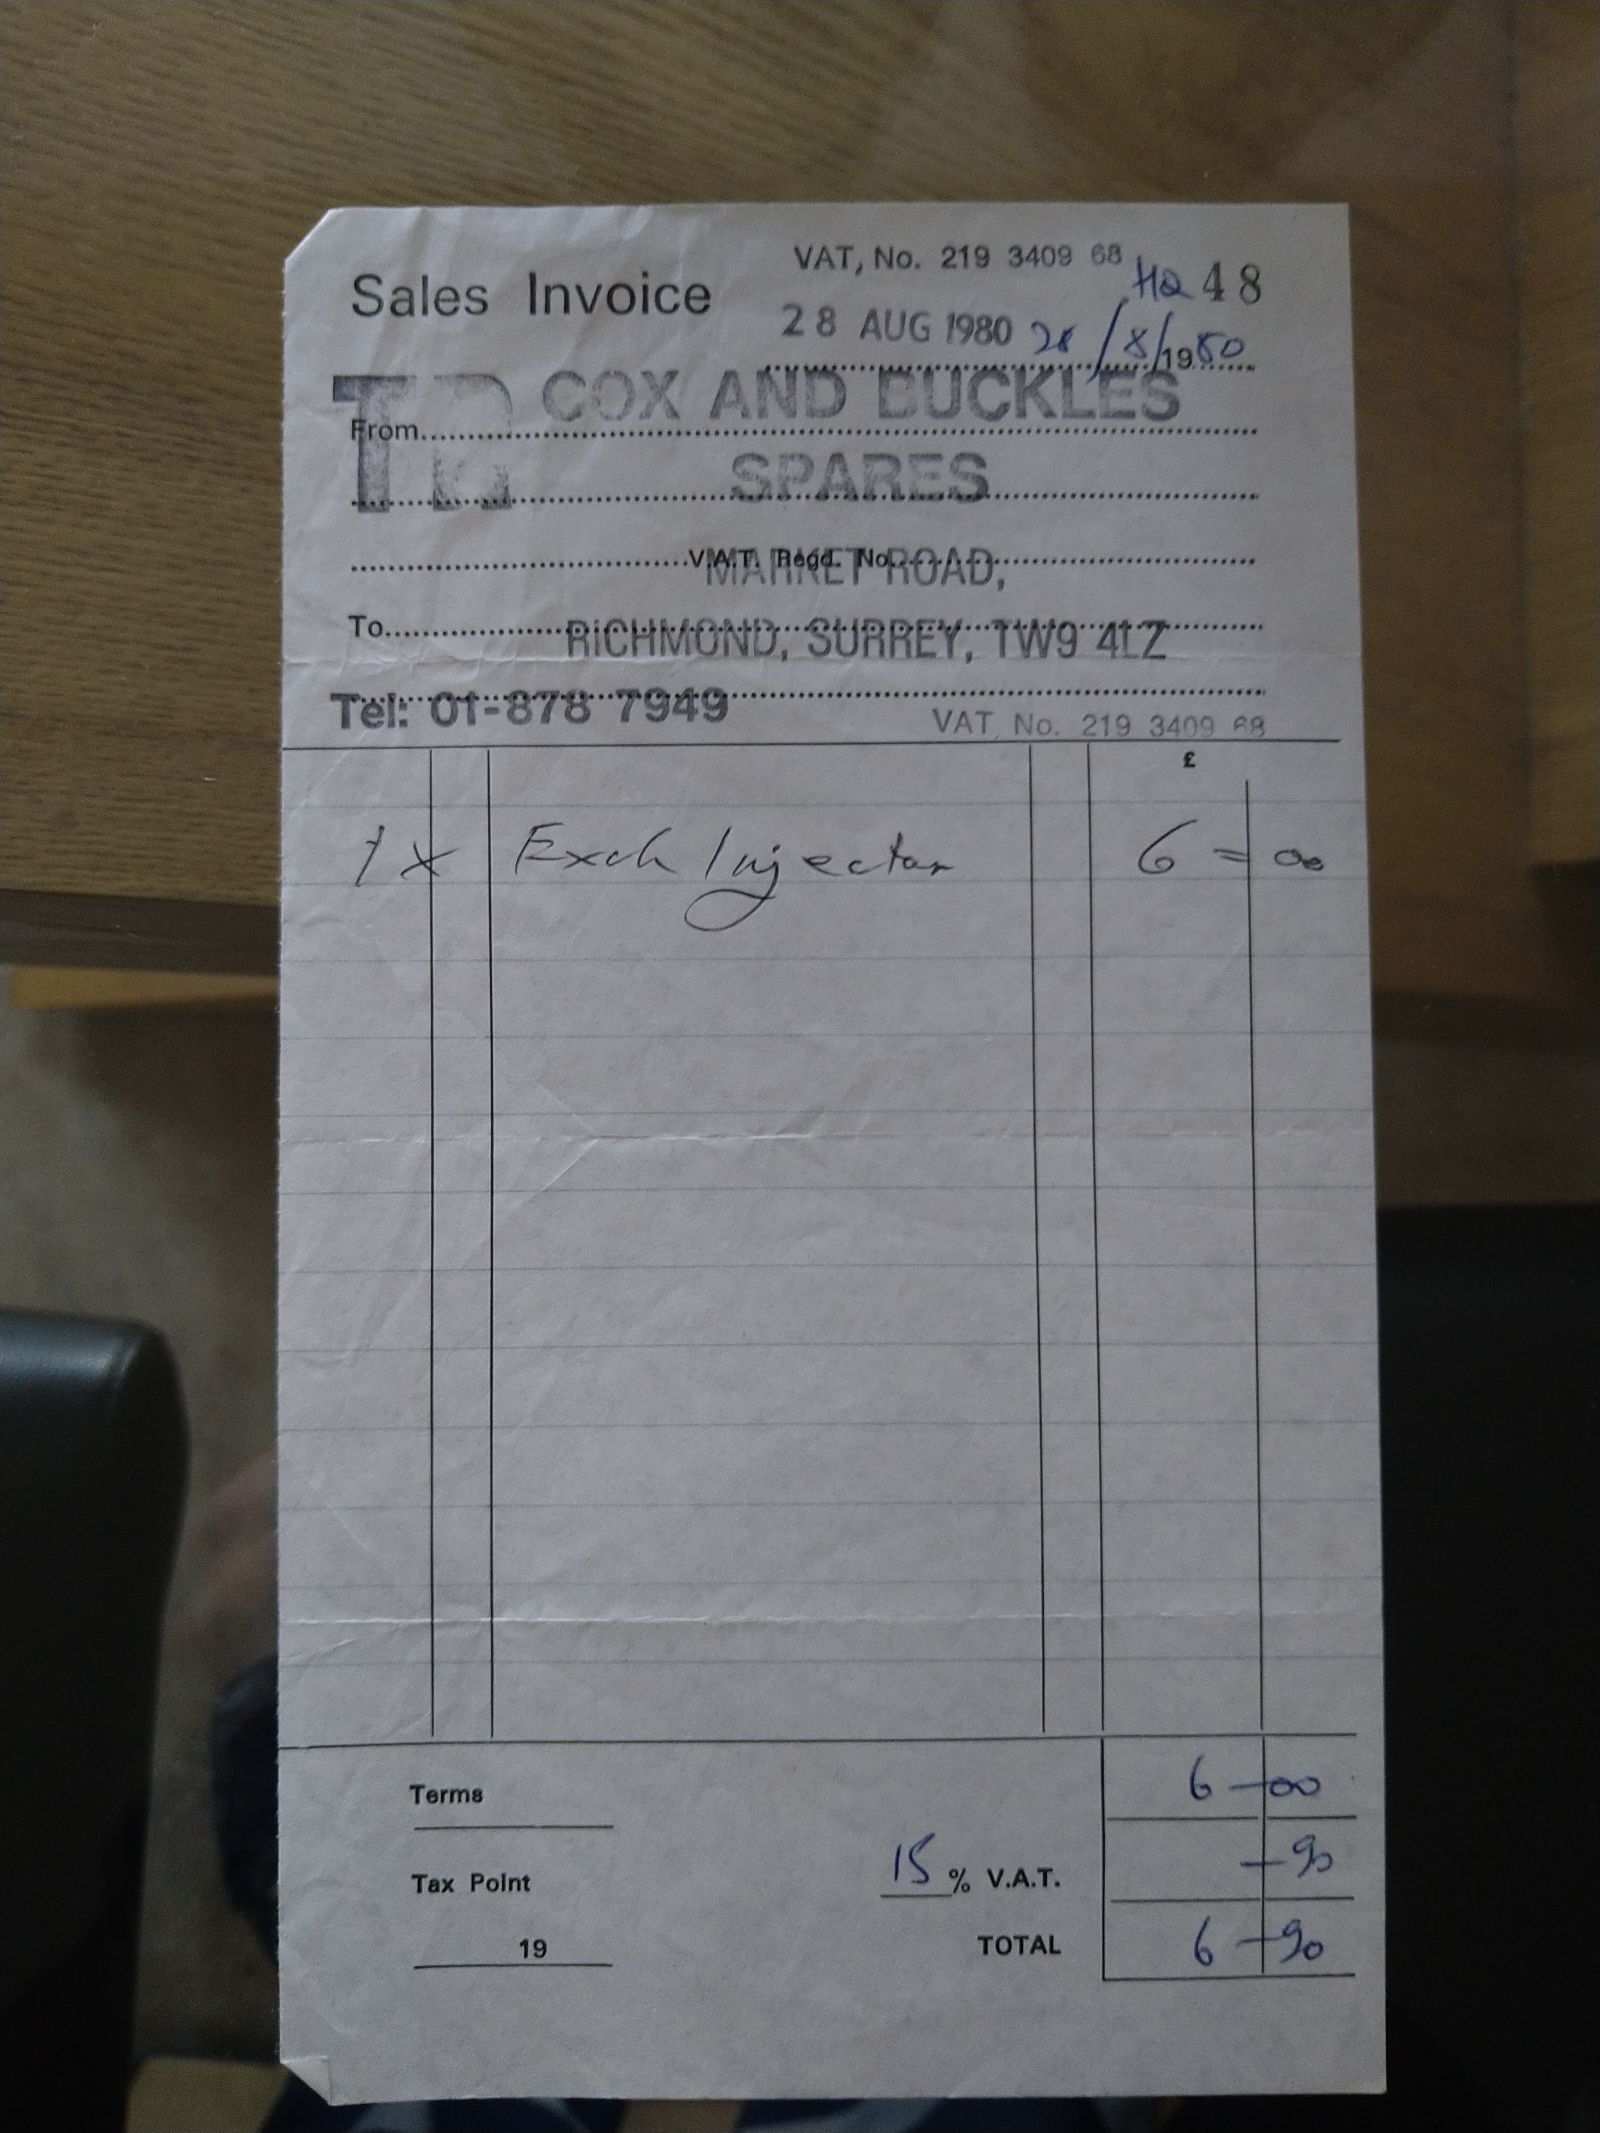 VAT, No. 219 3409 68
Sales Invoice
48
28 AUG 1980 28/8/1980
TR COX AND BUCKLES
From
SPARES
V.A.T. Regd. No.
MARKET ROAD,
To
RICHMOND, SURREY, TW9 4LZ
Tel: 01-878 7949 VAT, No. 219 3409 68
£
1 x Exch Injector 6 = 00
Terms 6 - 00
Tax Point 15 % V.A.T. - 90
19 TOTAL 6 - 90